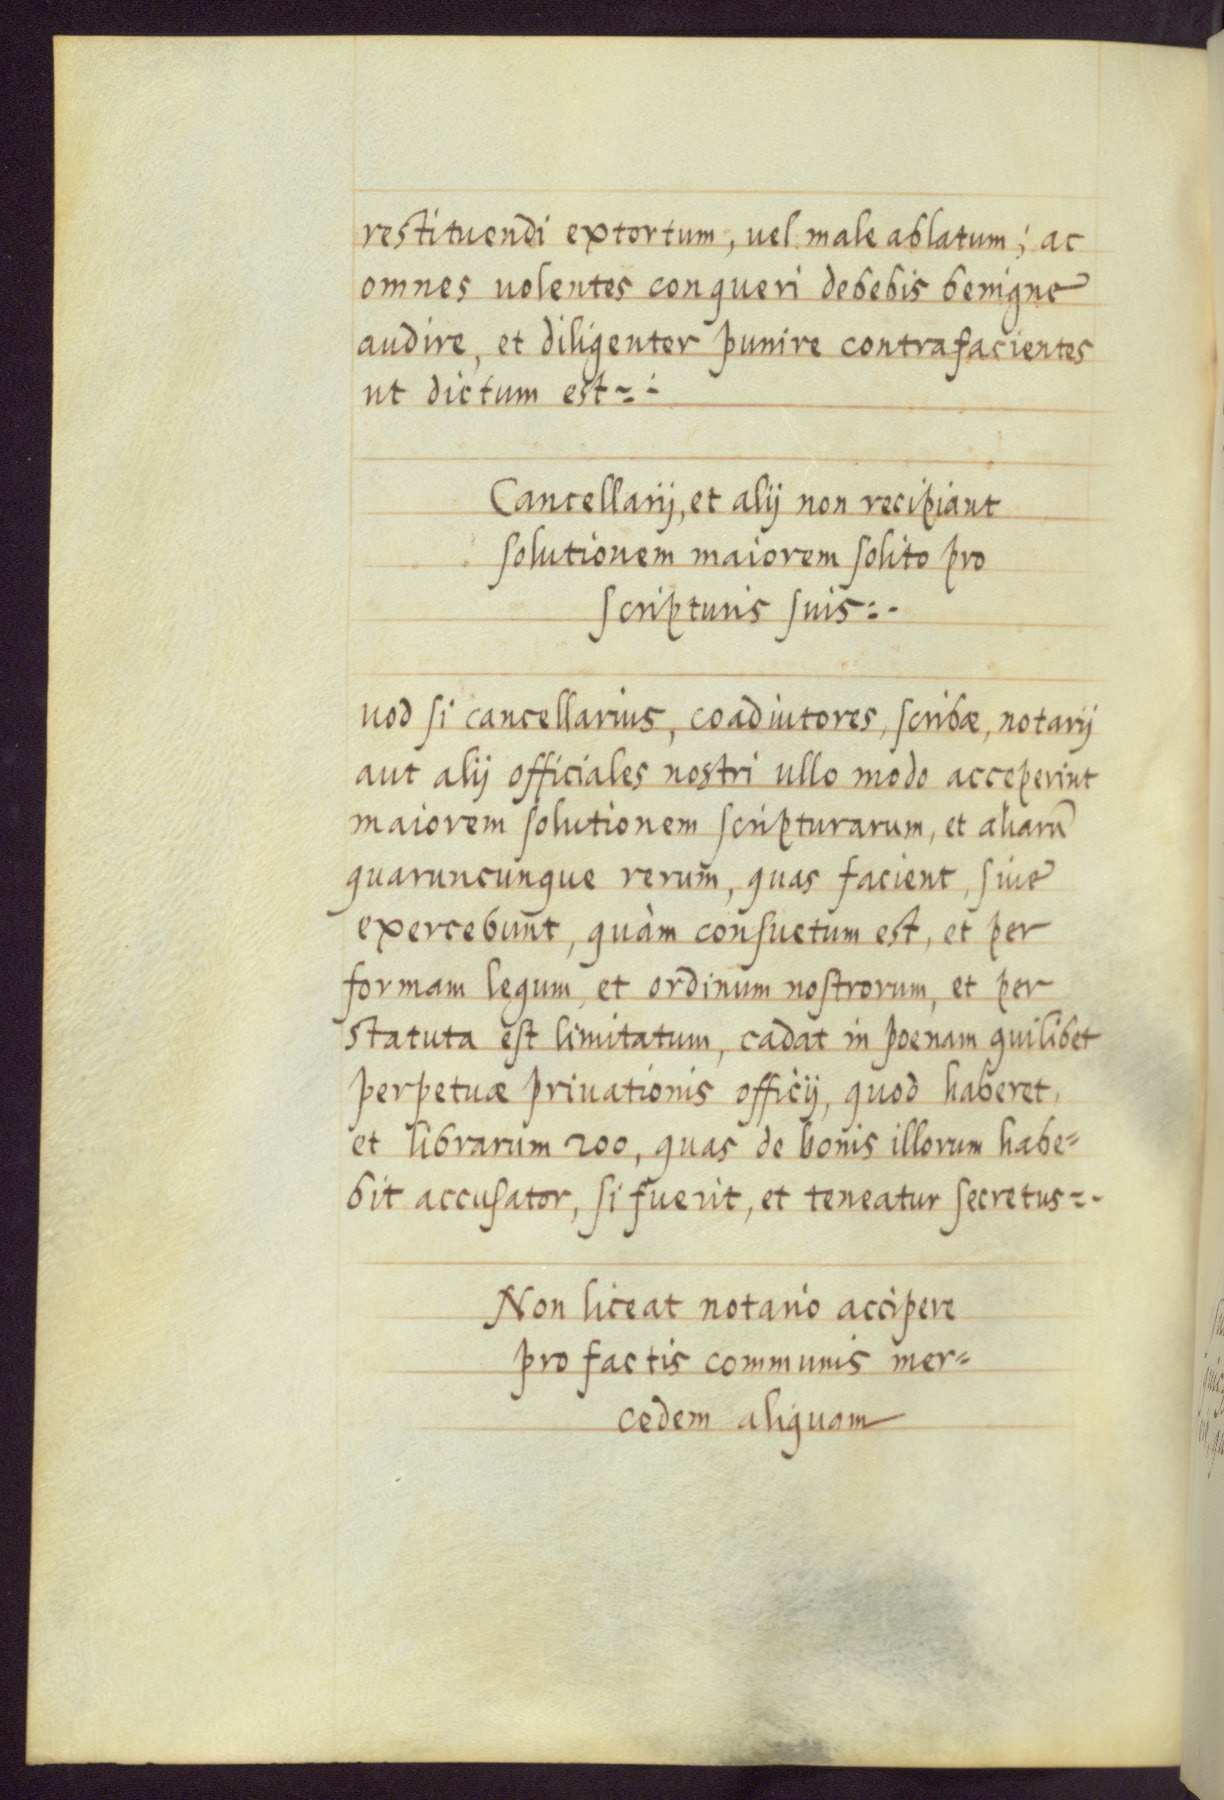 restituendi extortum, uel male ablatum; ac
omnes uolentes conqueri debebis benigne
audire, et diligenter punire contrafacientes
ut dictum est
Cancellarij, et alij non recipiant
solutionem maiorem solito pro
scripturis suis
uod si cancellarius, coadiutores, scribæ, notarij
aut alij officiales nostri ullo modo acceperint
maiorem solutionem scripturarum, et aliarũ
quaruncunque rerum̃, quas facient, siue
exercebunt, quàm consuetum est, et per
formam legum, et ordinum nostrorum, et per
statuta est limitatum, cadat in poenam quilibet
perpetuæ priuationis officij, quod haberet,
et librarum 200, quas de bonis illorum habe=
bit accusator, si fuerit, et teneatur secretus
Non liceat notario accipere
pro factis communis mer=
cedem aliquam